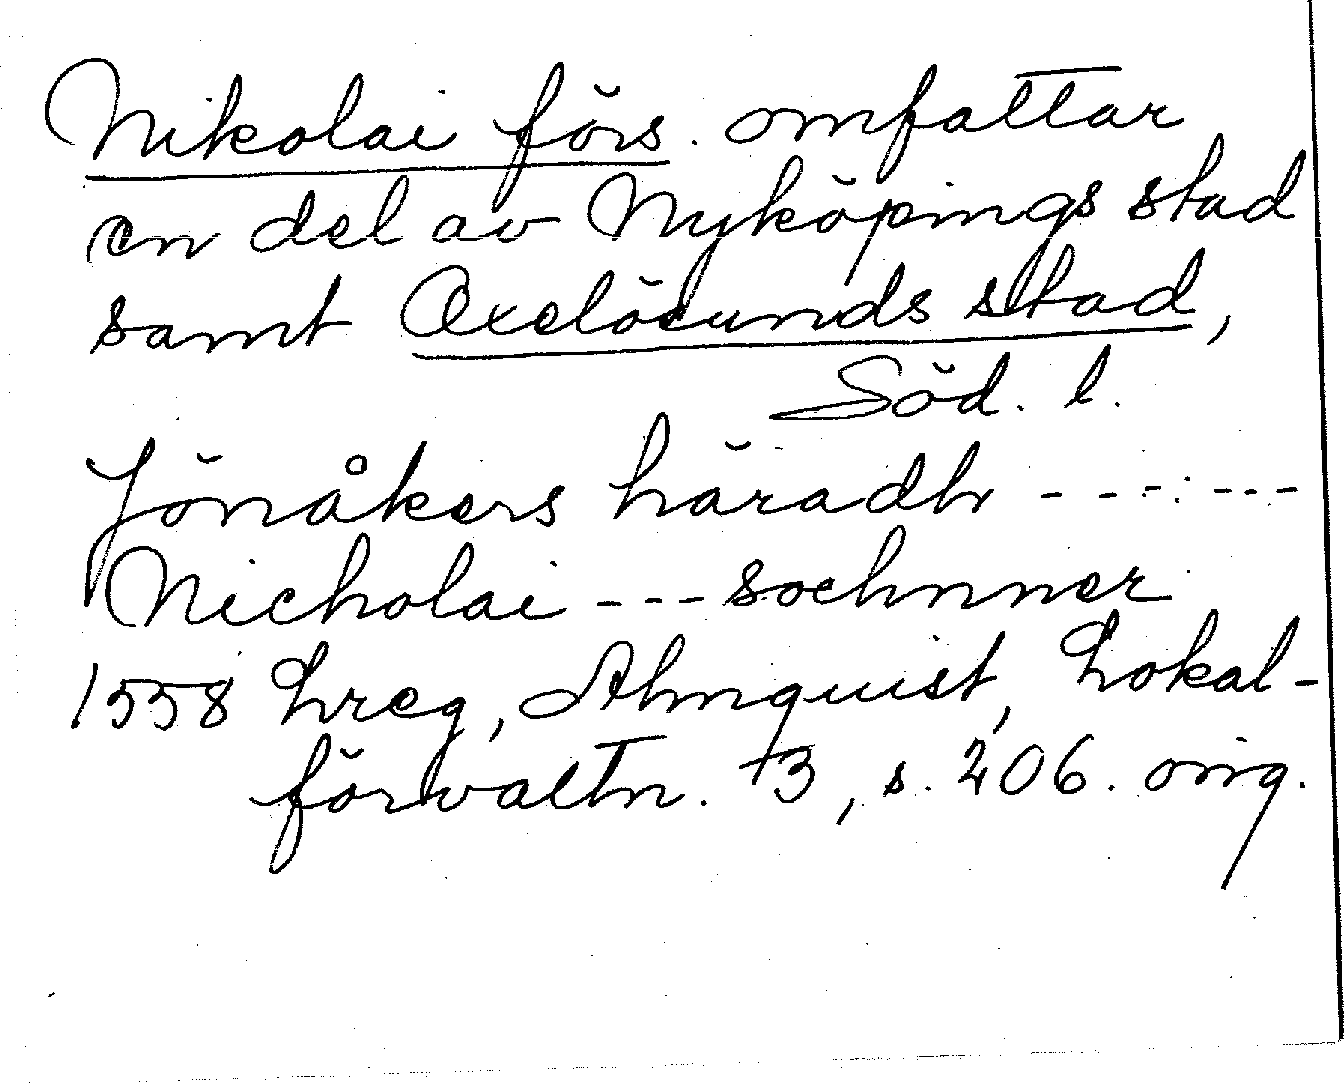 Nikolai förs. omfattar
en del av Nyköpings stad
samt Oxelösunds stad,
Söd. l.
Jönåkers häradh - - - : - - -
Nicholai - - - sochnner
1558 Lreg, Almquist, Lokal-
förvaltn. +3, s. 206. orig.